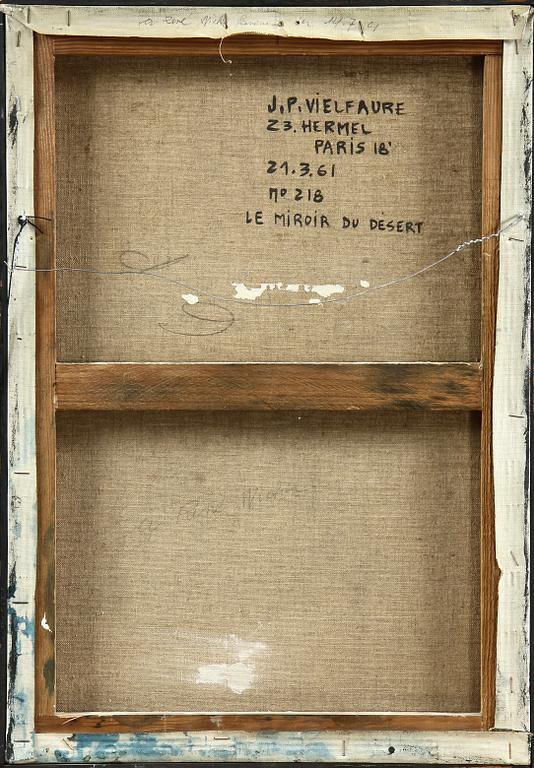 J.P. VIELFAURE
23. HERMEL
PARIS 18'
21.3.61
nº 218
LE MIROIR DU DÉSERT